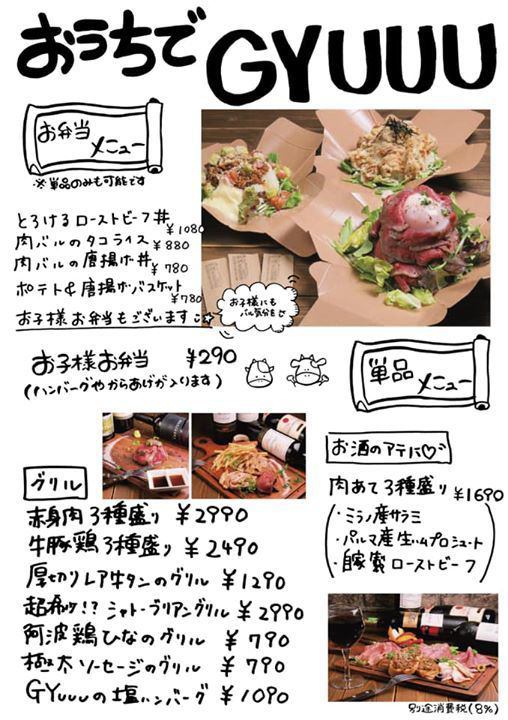 おうちで GYUUU
お弁当
メニュー
※単品のみも可能です
とろけるローストビーフ丼 ¥1080
肉バルのタコライス ¥880
肉バルの唐揚げ丼 ¥780
ポテト&唐揚げバスケット ¥780
お子様お弁当もございます
お子様にも
バル気分を
お子様お弁当 ¥290
(ハンバーグやからあげが入ります)
単品
メニュー
お酒のアテに♡
肉あて3種盛り ¥1690
・ミラノ産サラミ
・パルマ産生ハムプロシュート
・自家製ローストビーフ
グリル
赤身肉3種盛り ¥2990
牛豚鶏3種盛り ¥2490
厚切りレア牛タンのグリル ¥1290
超希少!?シャトーブリアングリル ¥2990
阿波鶏ひなのグリル ¥790
極太ソーセージのグリル ¥790
GYuuuの塩ハンバーグ ¥1090
別途消費税(8%)